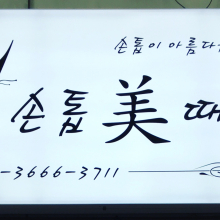 손톱이 아름다
손톱 美 때
-3666-3711